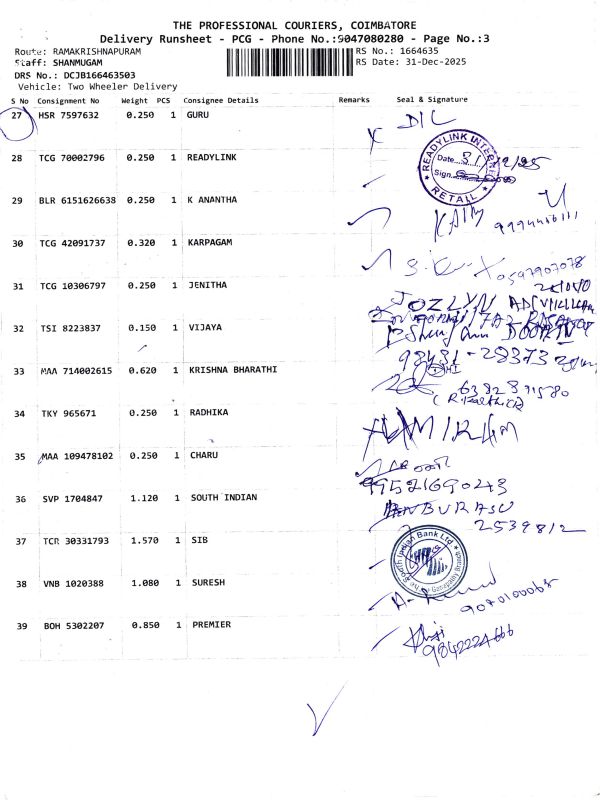 THE PROFESSIONAL COURIERS, COIMBATORE
Delivery Runsheet - PCG - Phone No.:9047080280 - Page No.:3
Route: RAMAKRISHNAPURAM RS No.: 1664635
Staff: SHANMUGAM RS Date: 31-Dec-2025
DRS No.: DCJB166463503
Vehicle: Two Wheeler Delivery
S No Consignment No Weight PCS Consignee Details Remarks Seal & Signature
27 HSR 7597632 0.250 1 GURU
D/L
28 TCG 70002796 0.250 1 READYLINK
READYLINK INTERNET
Date 31/12/25
Sign.
RETAIL
29 BLR 6151626638 0.250 1 K ANANTHA
30 TCG 42091737 0.320 1 KARPAGAM
31 TCG 10306797 0.250 1 JENITHA
JOZLYN
32 TSI 8223837 0.150 1 VIJAYA
98431-28373
33 MAA 714002615 0.620 1 KRISHNA BHARATHI
34 TKY 965671 0.250 1 RADHIKA
35 MAA 109478102 0.250 1 CHARU
9952169043
36 SVP 1704847 1.120 1 SOUTH INDIAN
ANBURASU
2539812
37 TCR 30331793 1.570 1 SIB
The South Indian Bank Ltd
Ganapathy Branch
38 VNB 1020388 1.080 1 SURESH
39 BOH 5302207 0.850 1 PREMIER